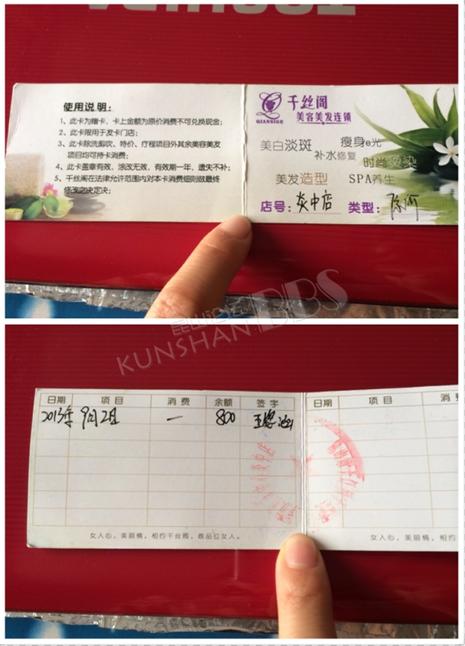 使用说明：
1、此卡为赠卡，卡上金额为原价消费不可兑换现金；
2、此卡限用于发卡门店；
3、此卡除洗剪吹、特价、疗程项目外其余美容美发
项目均可持卡消费；
4、此卡盖章有效、涂改无效、有效期一年，遗失不补；
5、千丝阁在法律允许范围内对本卡消费细则做最终
修改之决定决；
千丝阁
QIANSIGE
美容美发连锁
美白淡斑 瘦身e光
补水修复 时尚烫染
美发造型 SPA养生
店号：友中店 类型：
KUNSHAN BBS
日期 项目 消费 余额 签字
2013年 9月2日 一 800
女人心，美丽情，相约千丝阁，做品位女人。
日期 项目 消
女人心，美丽情，相约千